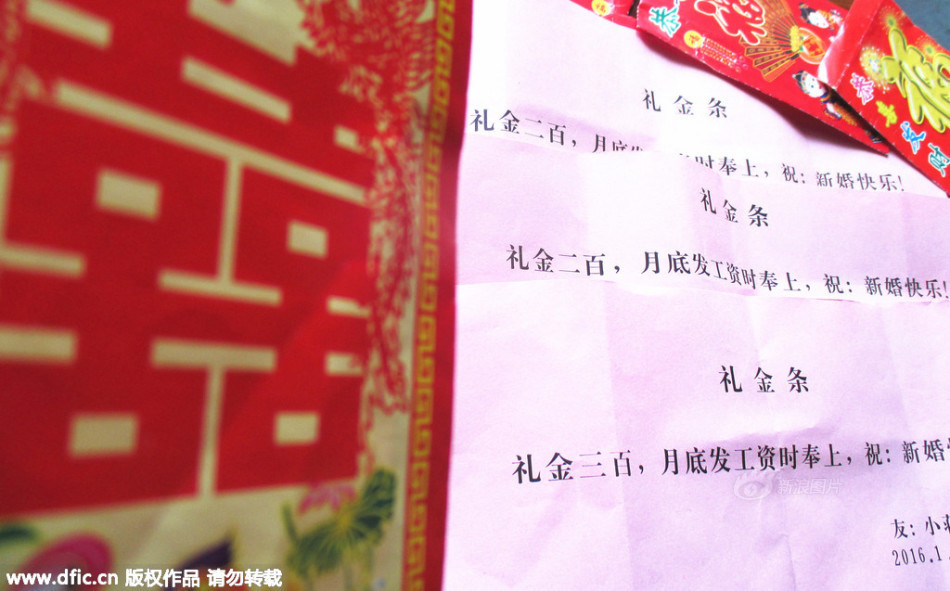 礼金条
礼金二百，月底发工资时奉上，祝：新婚快乐！
礼金条
礼金二百，月底发工资时奉上，祝：新婚快乐！
礼金条
礼金三百，月底发工资时奉上，祝：新婚
友：小
2016.1
囍
新浪图片
www.dfic.cn 版权作品 请勿转载